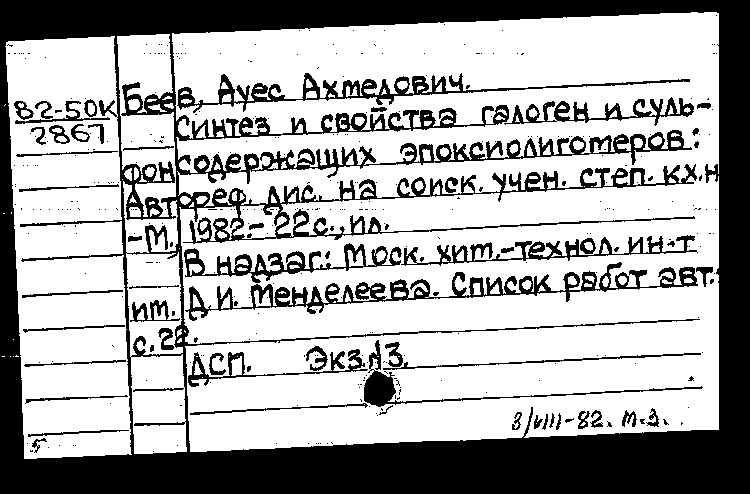 82-50К
2867
Беев, Ауес Ахмедович.
Синтез и свойства галоген и суль-
фонсодержащих эпоксиолигомеров:
Автореф. дис. на соиск. учен. степ. к.х.н
-М., 1982.- 22с., ил.
В надзаг.: Моск. хим.-технол. ин-т
им. Д.И. Менделеева. Список работ авт.:
с.22.
ДСП. Экз.№3.
3/VIII-82. м.з.
5